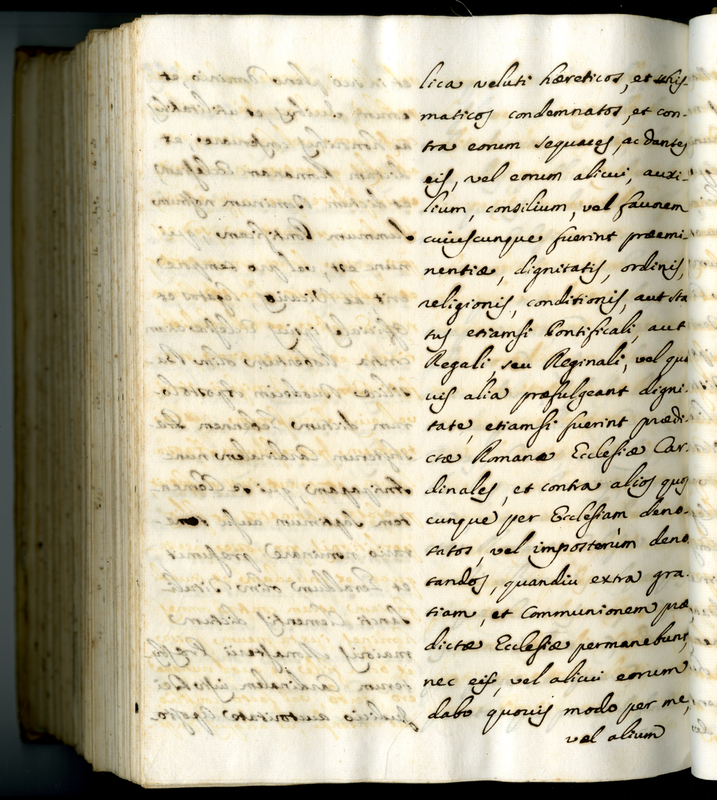 lica veluti hæreticos, et schis-
maticos condemnatos, et con-
tra eorum sequaces, ac dantes
eis, vel eorum alicui, auxi-
lium, consilium, vel favorem
cuiuscunque fuerint præemi-
nentiæ, dignitatis, ordinis,
religionis, conditionis, aut sta
tus etiamsi Pontificali, aut
Regali, seu Reginali, vel qua
vis alia præfulgeant digni-
tate, etiamsi fuerint prædi-
ctæ Romanæ Ecclesiæ Car-
dinales, et contra alios quos
cunque per Ecclesiam deno-
tatos, vel imposterùm deno
tandos, quandiu extra gra-
tiam, et Communionem præ
dictæ Ecclesiæ permanebunt,
nec eis, vel alicui eorum
dabo quovis modo per me,
vel alium